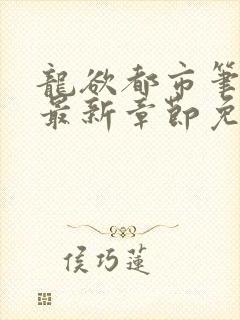 龍欲都市筆
最新章節免
侯巧蓮